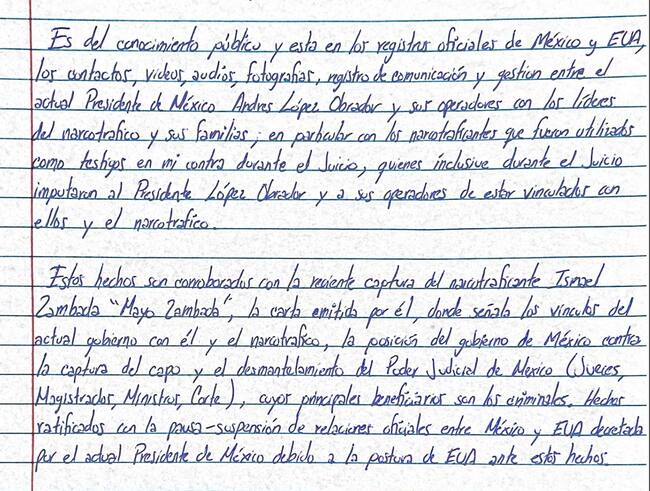 Es del conocimiento público y esta en los registros oficiales de México y EUA,
los contactos, videos, audios, fotografias, registro de comunicación y gestion entre el
actual Presidente de México Andres López Obrador y sus operadores con los líderes
del narcotrafico y sus familias; en particular con los narcotraficantes que fueron utilizados
como testigos en mi contra durante el Juicio, quienes inclusive durante el Juicio
imputaron al Presidente López Obrador y a sus operadores de estar vinculados con
ellos y el narcotrafico.
Estos hechos son corroborados con la reciente captura del narcotraficante Ismael
Zambada "Mayo Zambada", la carta emitida por él, donde señala los vínculos del
actual gobierno con él y el narcotrafico, la posición del gobierno de México contra
la captura del capo y el desmantelamiento del Poder Judicial de Mexico (Jueces,
Magistrados, Ministros, Corte), cuyos principales beneficiarios son los criminales. Hechos
ratificados con la pausa-suspensión de relaciones oficiales entre México y EUA decretada
por el actual Presidente de México debido a la postura de EUA ante estos hechos.